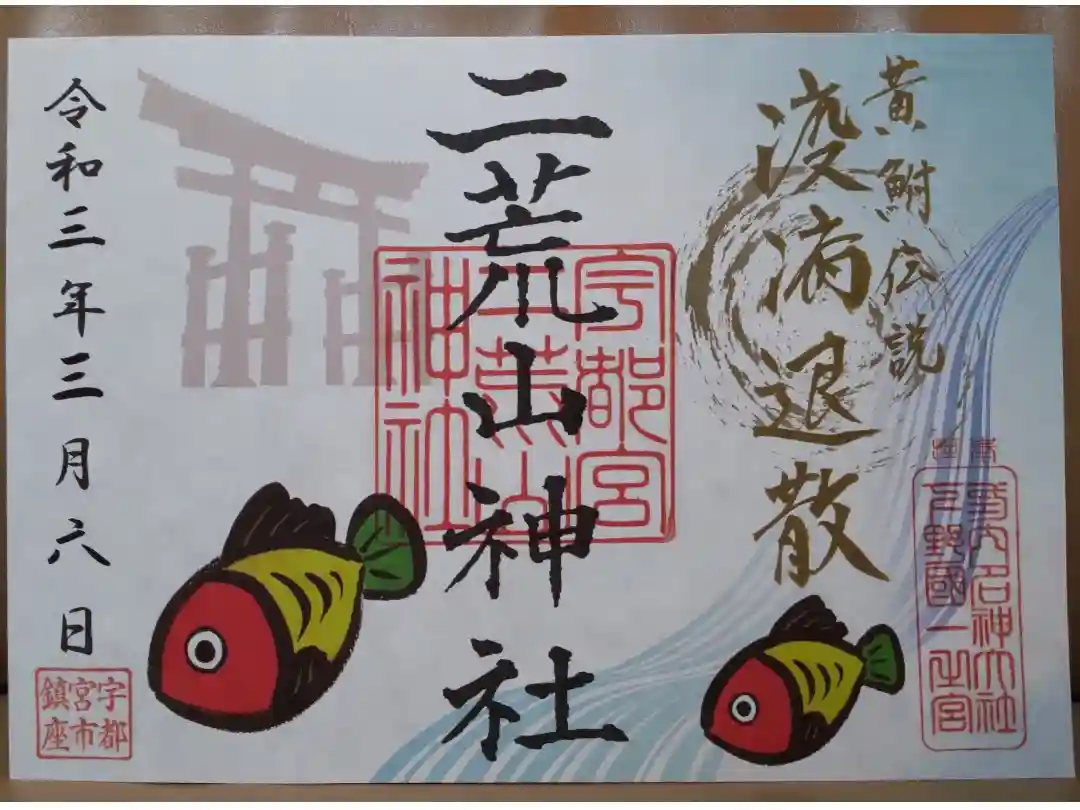 黄鮒伝説
疫病退散
式内名神大社
下野國一之宮
二荒山神社
宇都宮
二荒山
神社
令和三年三月六日
宇都
宮市
鎮座